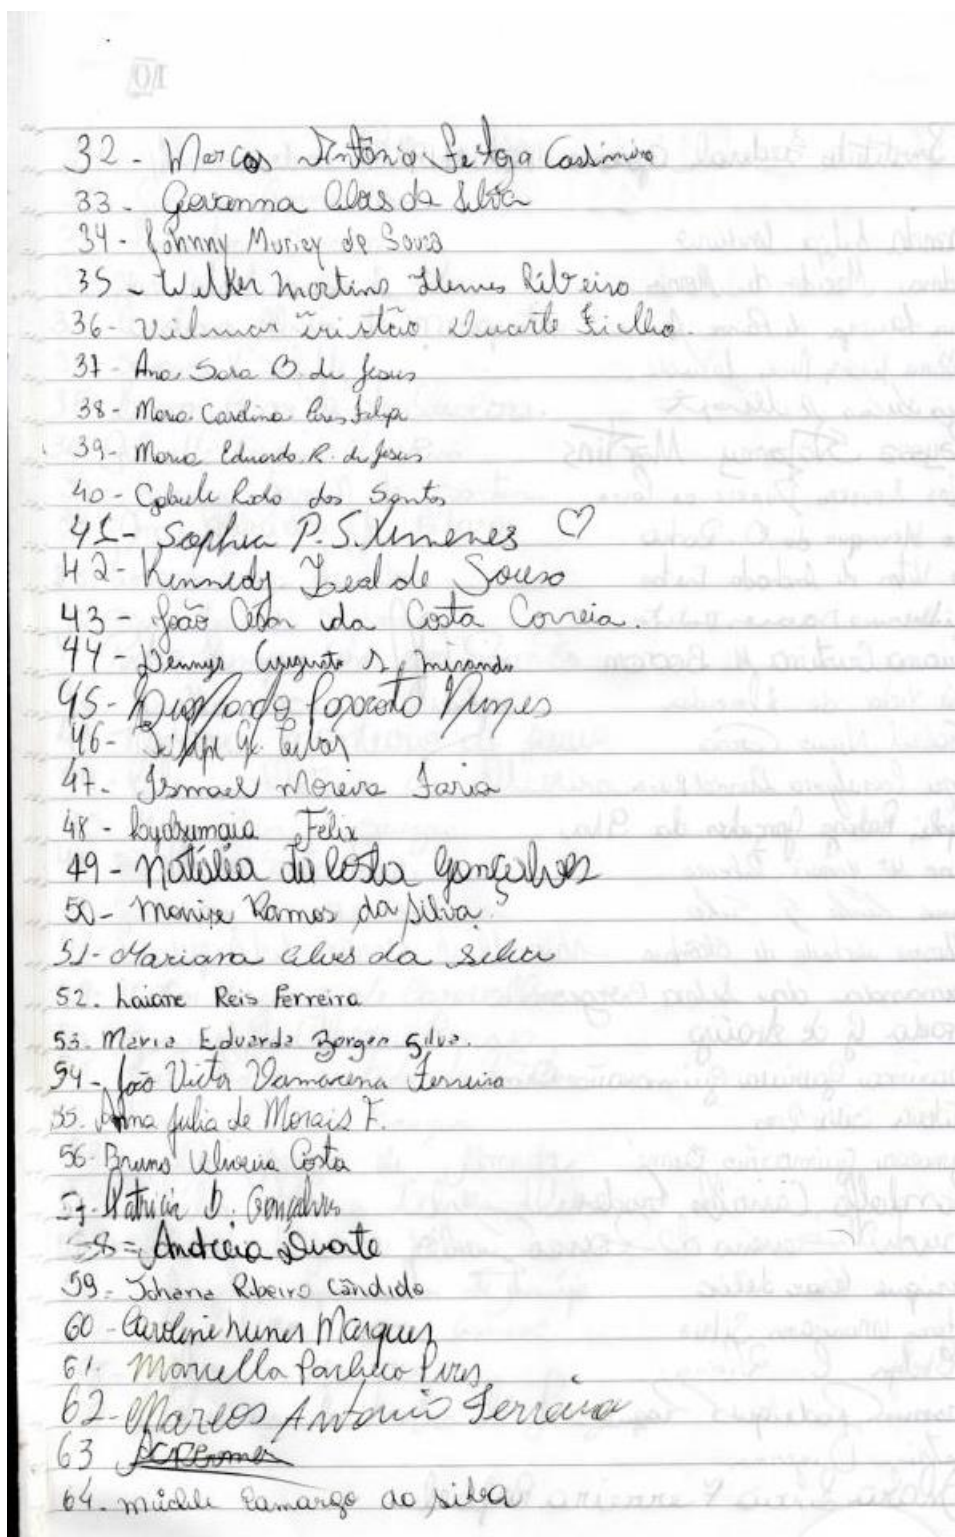 32 - Marcos Antônio Feitoza Casimiro
33 - Geovanna Alves da Silva
34 - Johnny Muriey de Souza
35 - Welker Martins Lemes Ribeiro
36 - Vilmar Tristão Duarte Filho.
37 - Ana Sara B. de Jesus
38 - Maria Carolina Pires Felipe
39 - Maria Eduarda R. de Jesus
40 - dos Santos
41 - Sophia P. S. Ximenes
42 - Kennedy Leal de Souso
43 - João César da Costa Correia.
44 - Dennys Augusto S. Miranda
45 - Nunes
46 - Felipe G.
47 - Ismael Moreira Faria
48 - Félix
49 - Natália da Costa Gonçalves
50 - Monize Ramos da Silva.
51 - Mariana Alves da Silva
52. Laiane Reis Ferreira
53. Maria Eduarda Borges Silva.
54 - João Victor Damacena Ferreira
55. Anna Julia de Morais F.
56 - Bruno Costa
57 - Patricia D. Gonçalves
58 = Andreia Duarte
59 - Johana Ribeiro Cândido
60 - Caroline Nunes Marques
61. Marcella Pacheco Pires
62 - Marcos Antonio Ferreira
63
64. Michele Camargo da silva